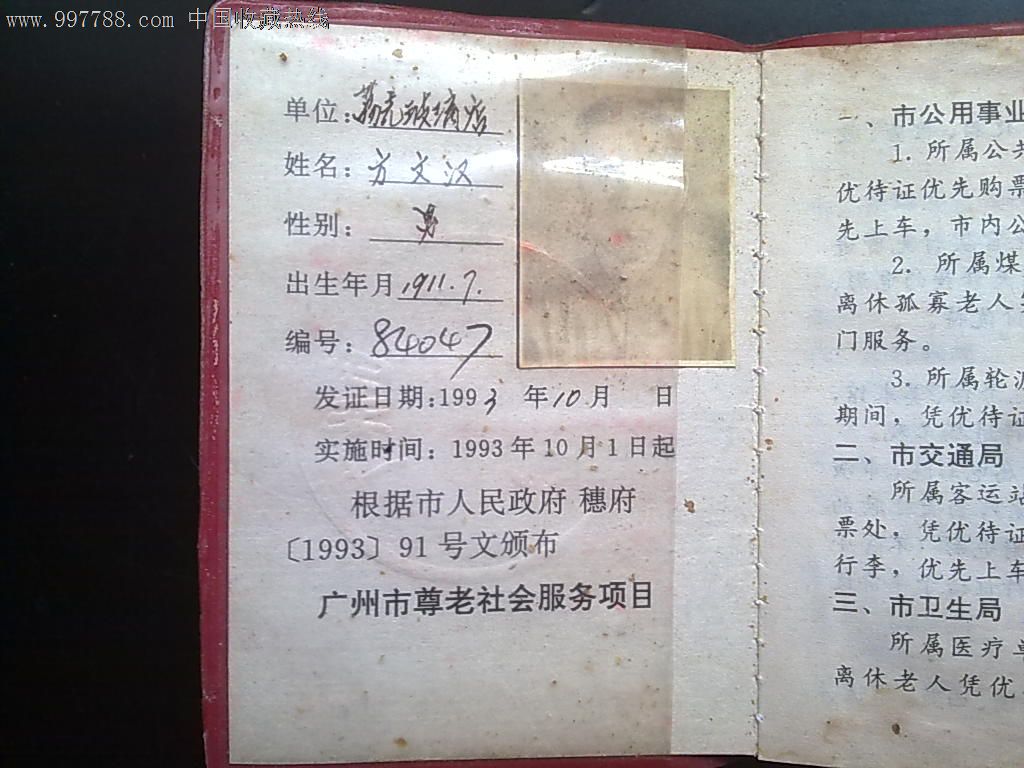 www.997788.com 中国收藏热线
单位:
姓名: 方文汉
性别: 男
出生年月 1911.7.
编号: 84047
发证日期:1993 年10月 日
实施时间: 1993年10月1日起
根据市人民政府 穗府
〔1993〕91号文颁布
广州市尊老社会服务项目
一、市公用事业
1. 所属公共
优待证优先购票
先上车，市内公
2. 所属煤
离休孤寡老人
门服务。
3. 所属轮
期间，凭优待证
二、市交通局
所属客运站
票处，凭优待证
行李，优先上车
三、市卫生局
所属医疗单
离休老人凭优